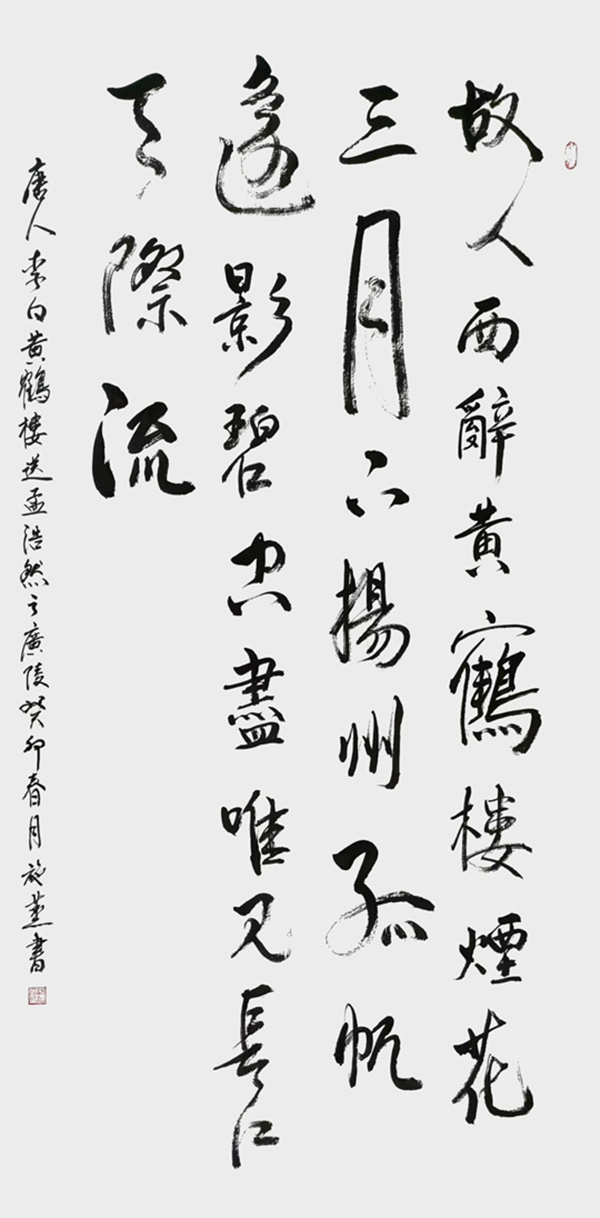 故人西辭黄鶴樓煙花
三月下揚州孤帆
遠影碧空盡唯見長江
天際流
唐人李白黄鶴樓送孟浩然之廣陵癸卯春月書